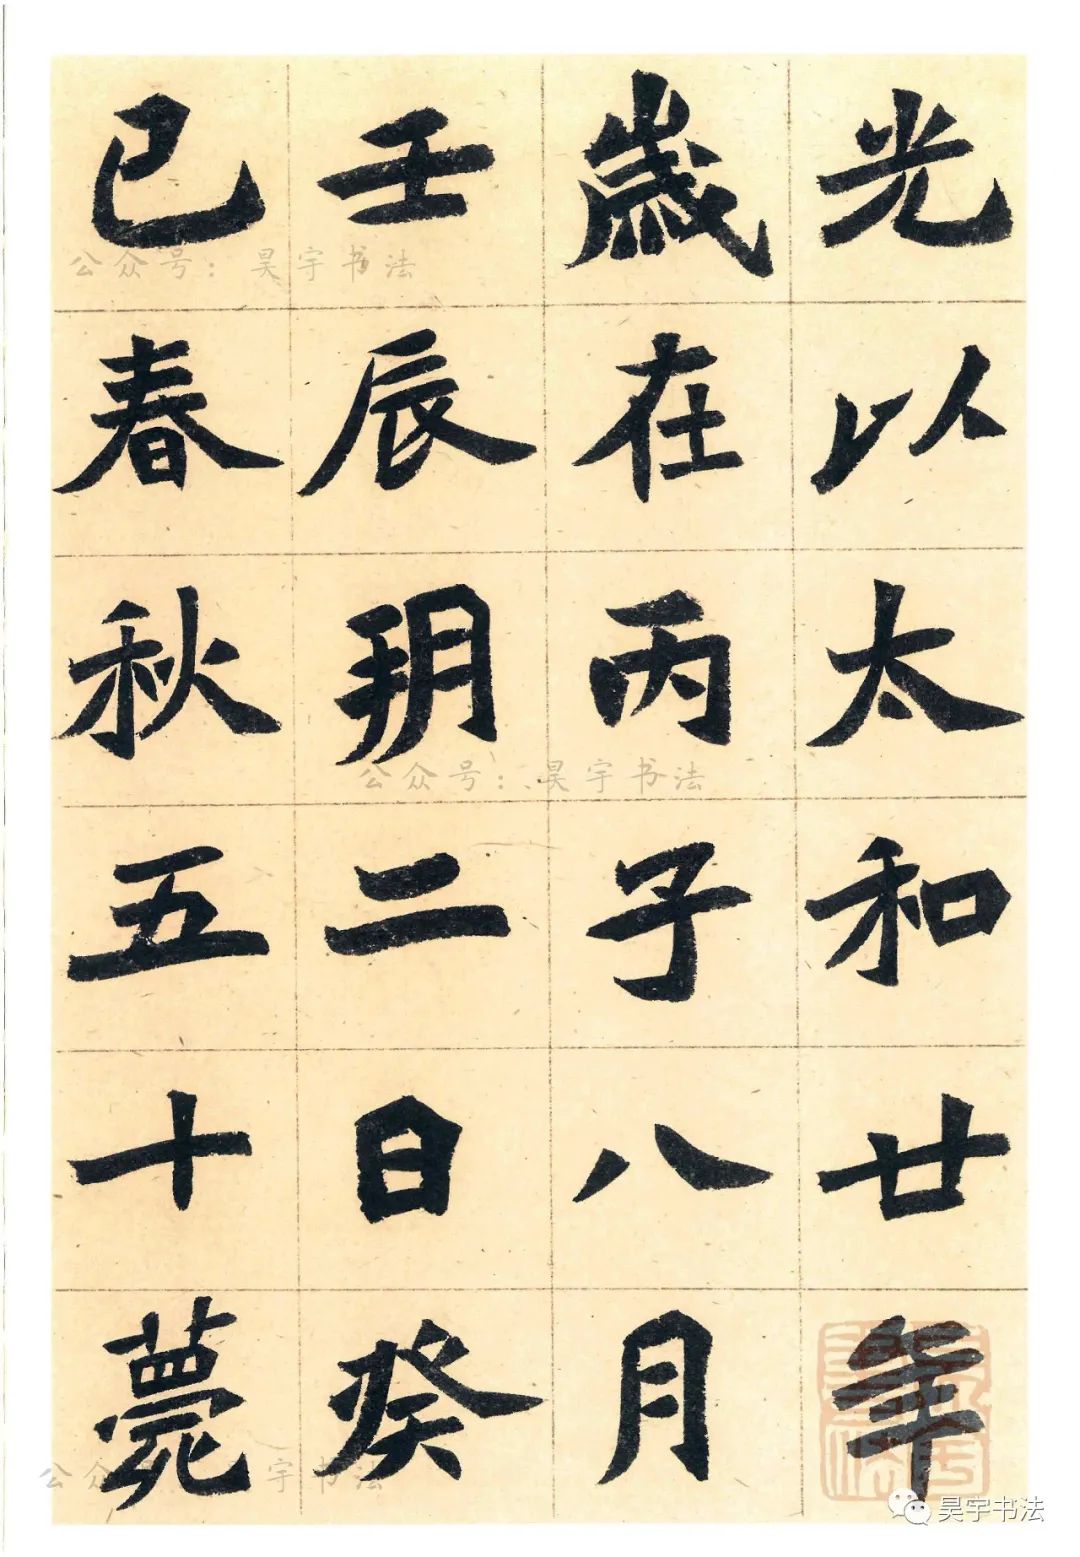 光以太和廿年
歲在丙子八月
壬辰朔二日癸
巳春秋五十薨
公众号：昊宇书法
公众号：昊宇书法
公众 宇书法
昊宇书法